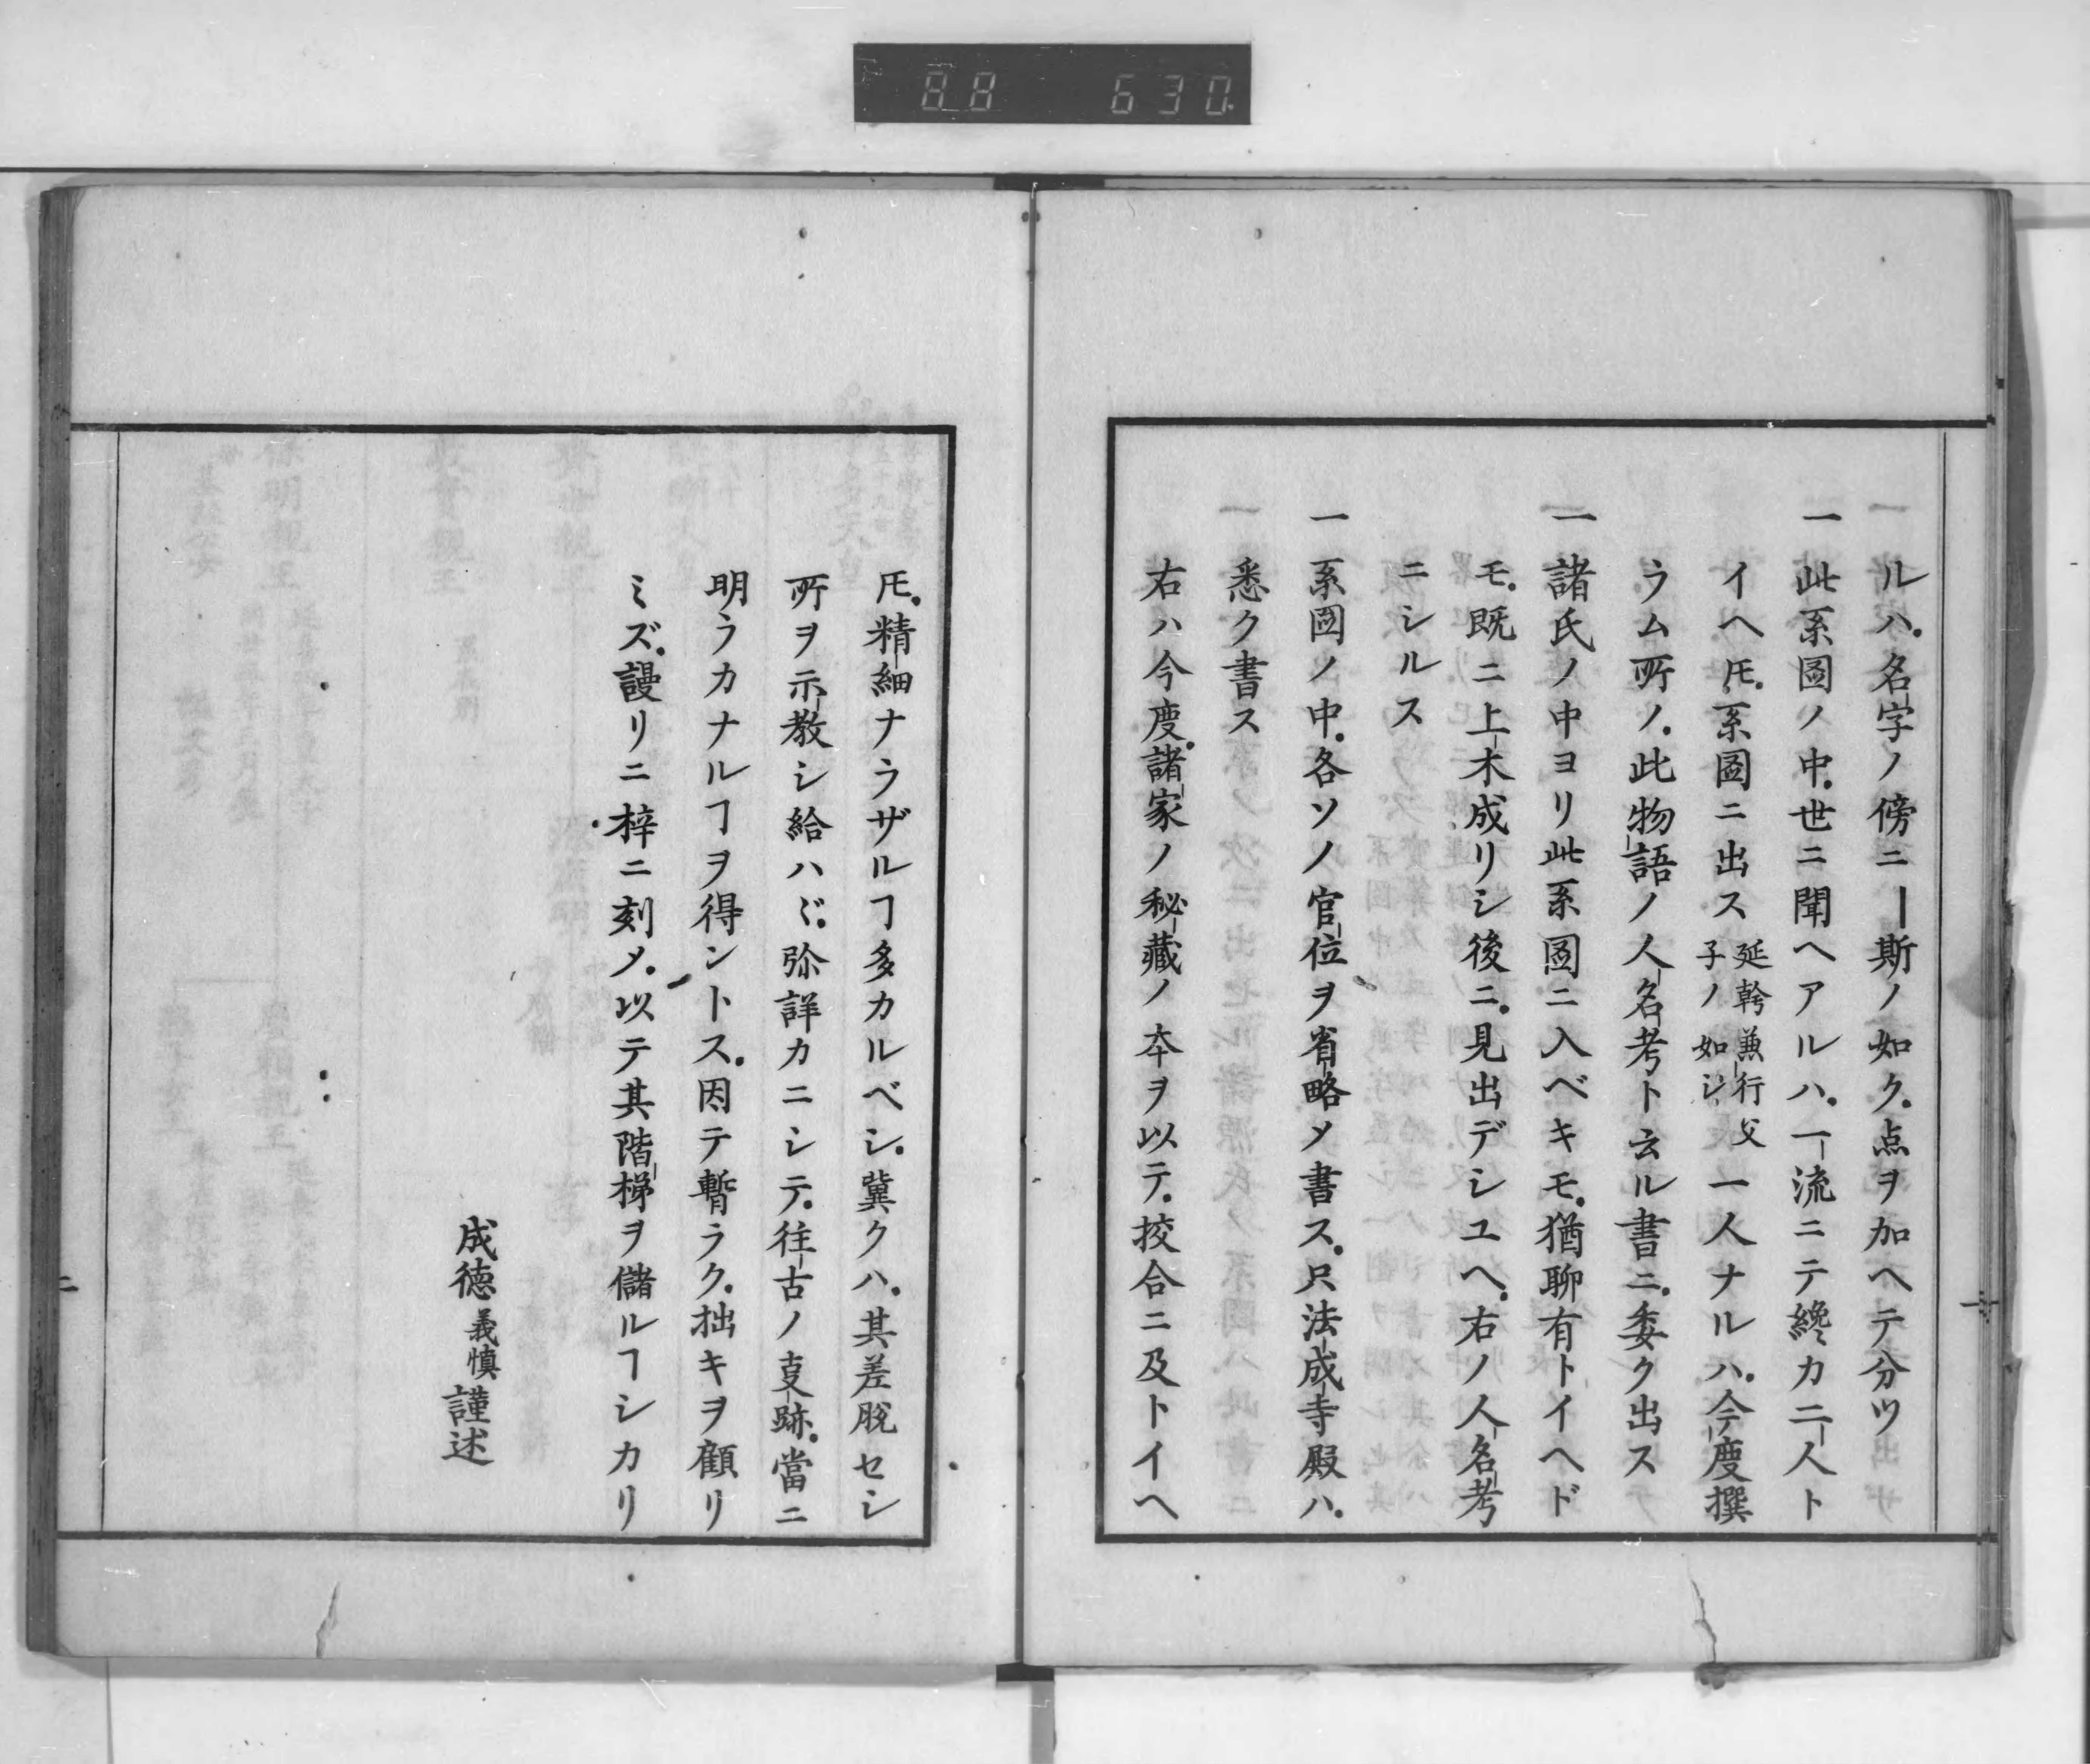 88 630
ルハ名字ノ傍ニ一斯ノ如ク点ヲ加ヘテ分ツ
一此系圖ノ中世ニ聞ヘアルハ一流ニテ纔カ二人ト
イヘ𪜈系圖ニ出ス延幹兼行父子ノ如シ一人ナルハ今度撰
ラム所ノ此物語ノ人名考ト云ル書ニ委ク出ス
一諸氏ノ中ヨリ此系圖ニ入ベキモ猶聊有トイヘド
モ既ニ上木成リシ後ニ見出デシユヘ右ノ人名考
ニシルス
一系圖ノ中各ソノ官位ヲ省略〆書ス只法成寺殿ハ
悉ク書ス
右ハ今度諸家ノ秘藏ノ夲ヲ以テ挍合ニ及トイヘ
𪜈精細ナラザルヿ多カルベシ冀クハ其差脱セシ
所ヲ示教シ給ハヾ弥詳カニシテ往古ノ㕝跡當ニ
明ラカナルヿヲ得ントス因テ暫ラク拙キヲ顧リ
ミズ謾リニ梓ニ刻〆以テ其階梯ヲ儲ルヿシカリ
成德義慎謹述
二